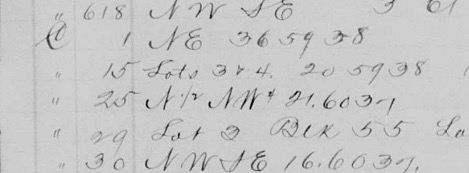 " 618 NW SE 3 61
1 NE 36 59 38
" 15 Lots 3 & 4. 20 59 38
" 25 N½ NW¼ 21.60 37
" 29 Lot 3 Blk 55 Lo
" 30 NW SE 16.60 37.